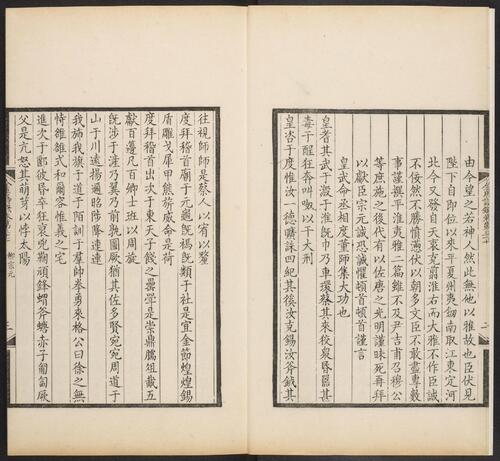 由今望之若神人然此無他以雅故也臣伏見
陛下自即位以來平夏州夷劒南取江東定河
北今又發自天衷克翦淮右而大雅不作臣誠
不佞然不勝憤懣伏以朝多文臣不敢盡專數
事謹撰平淮夷雅二篇雖不及尹吉甫召穆公
等庶施之後代有以佐唐之光明謹昧死再拜
以獻臣宗元誠恐誠懼頓首頓首謹言
皇武命丞相度董師集大功也
皇耆其武于溵于淮既巾乃車環蔡其來狡衆昏嚚甚
毒于酲狂奔叫呶以干大刑
皇咨于度惟汝一德曠誅四紀其徯汝克錫汝斧鉞其
往視師師是蔡人以宥以釐
度拜稽首廟于元龜既禡既類于社是宜金節煌煌錫
盾雕戈犀甲熊旂威命是荷
度拜稽首出次于東天子餞之罍斝是崇鼎臑俎胾五
獻百籩凡百卿士班以周旋
既涉于滻乃翼乃前孰圖厥猶其佐多賢宛宛周道于
山于川遠揚邇昭陟降連連
我旆我旗于道于陌訓于羣帥拳勇來格公曰徐之無
恃額額式和爾容惟義之宅
進次于郾彼昏卒狂裒兇鞠頑鋒蝟斧螗赤子匍匐厥
父是亢怒其萌芽以悖太陽
柳宗元